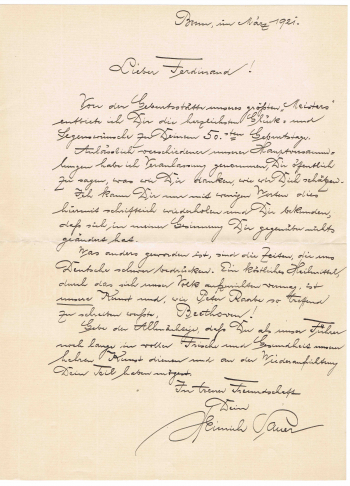 Bonn, im März 1921.
Lieber Ferdinand!
Von der Geburtsstätte unseres größten Meisters
entbiete ich Dir die herzlichsten Glück- und
Segenswünsche zu Deinem 50.sten Geburtstage.
Anlässlich verschiedener unserer
habe ich Veranlassung genommen, Dir öffentlich
zu sagen, was wir Dir danken, wie wir Dich schätzen.
Ich kann Dir nur mit wenigen Worten dies
hiermit schriftlich wiederholen und Dir bekunden,
daß sich in meiner Gesinnung Dir gegenüber nichts
geändert hat.
Was anders geworden ist, sind die Zeiten, die uns
Deutsche schwer bedrücken. Ein köstliches Heilmittel,
durch das sich unser Volk aufzurichten vermag, ist
unsere Kunst und, wie Peter Raabe so treffend
zu schreiben wußte, Beethoven!
Gebe der Allmächtige, daß Du als unser Führer
noch lange in voller Frische und Gesundheit unserer
hehren Kunst dienen und an der Wiederaufrichtung
Dein Teil haben mögest.
In treuer Freundschaft
Dein
Heinrich Sauer